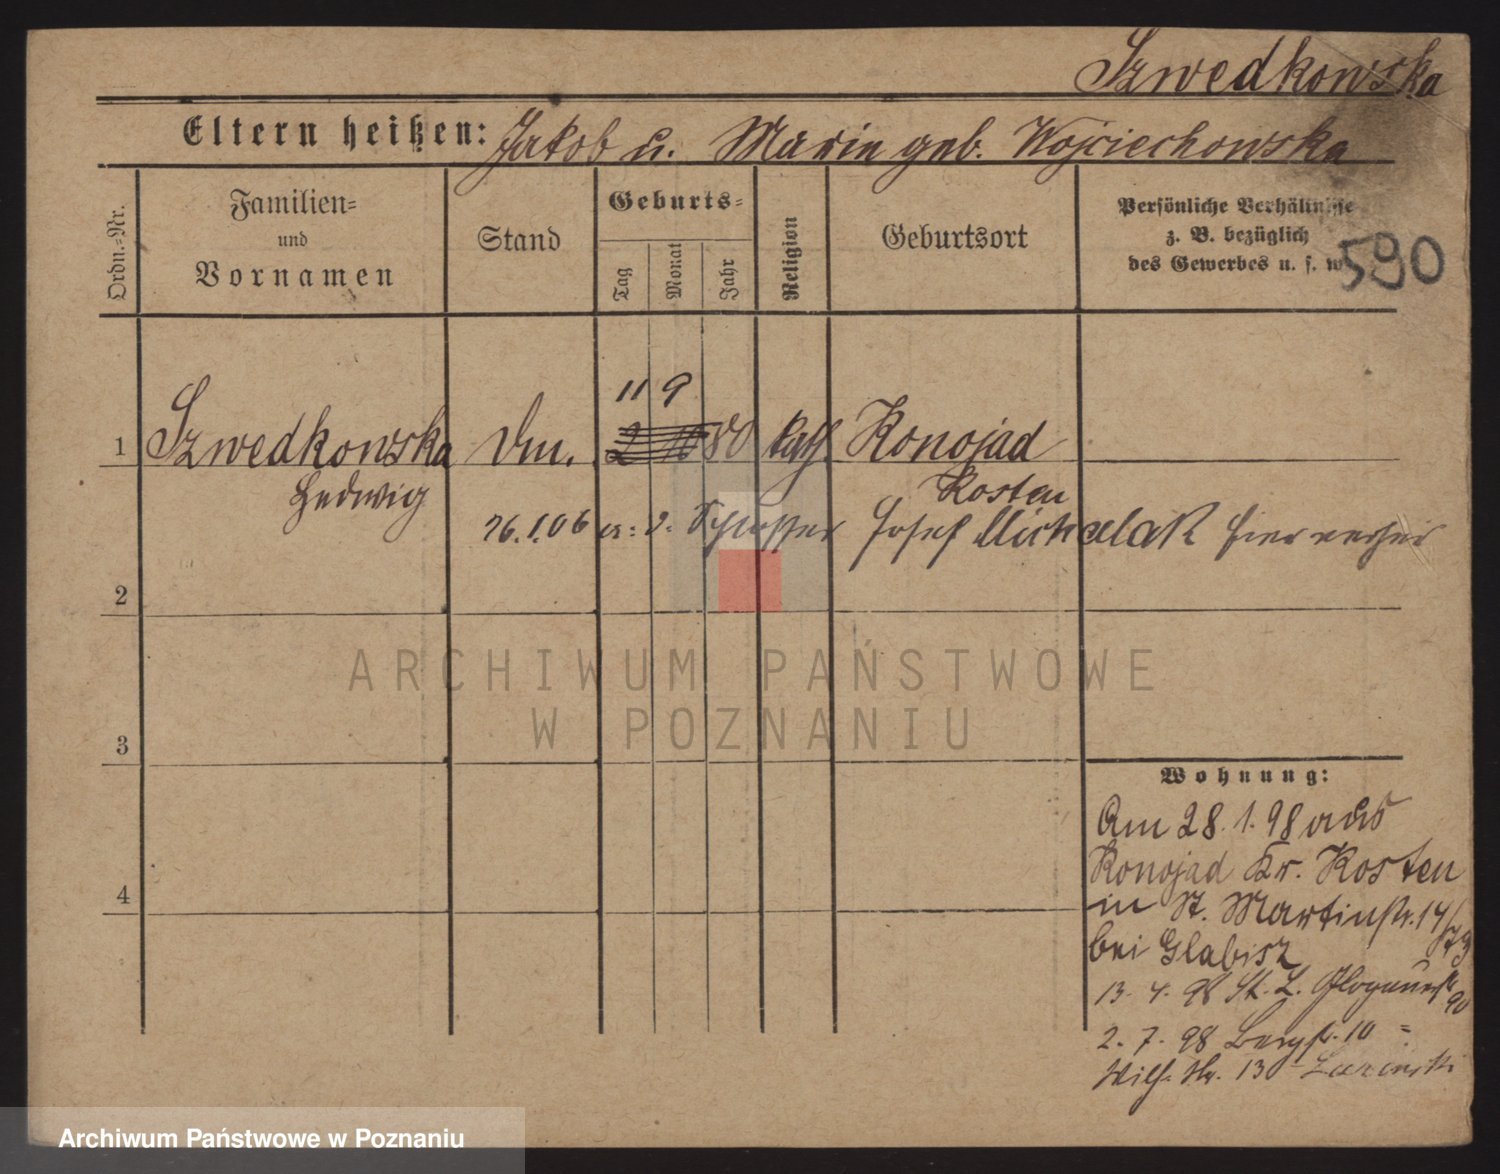 Szwedkowska
Eltern heißen: Jakob u. Marie geb. Wojciechowska
Ordn.-Nr.
Familien-
und
Vornamen
Stand
Geburts-
Tag
Monat
Jahr
Religion
Geburtsort
Persönliche Verhältnisse
z. B. bezüglich
des Gewerbes u. s. w.
590
11 9
1 Szwedkowska Dm. 80 kath. Konojad
Hedwig Kosten
26.1.06 Schlosser Josef Michalak hier
2
ARCHIWUM PAŃSTWOWE
W POZNANIU
3
Wohnung:
Am 28.1.98 aus
Konojad Kr. Kosten
4
in St. Martinstr. 14/
bei Glabisz
13. 4. 98 St. L. Glogauerstr 90
2. 7. 98 Bergstr. 10 =
Wilh. str. 13
Archiwum Państwowe w Poznaniu